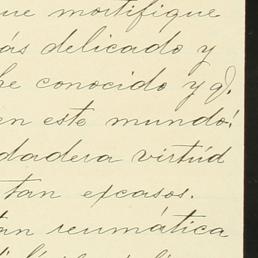 ue mortifique
ás delicado y
he conocido y q.
en este mundo!
dadera virtúd
tan excasos.
an reumática